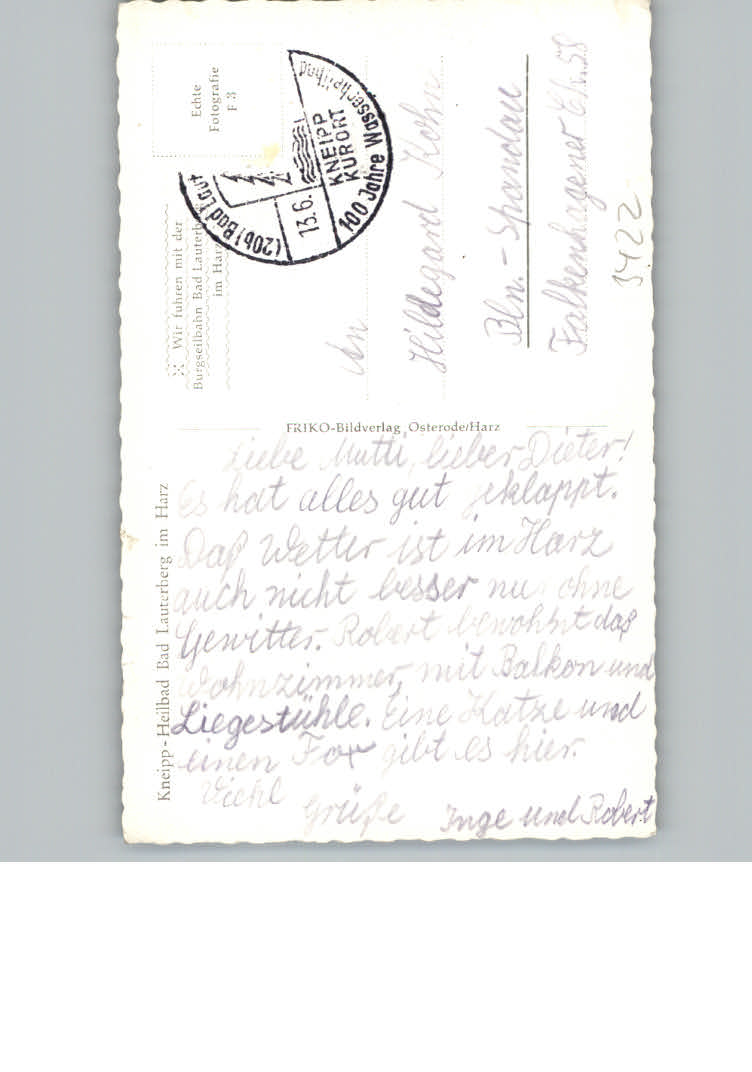 Echte
Fotografie
F 3
(20b) Bad Laut
13.6.
KNEIPP
KURORT
100 Jahre Wasserheilbad
Wir fuhren mit der
Burgseilbahn Bad Lauterb
im Harz
An
Hildegard Kohn
Bln. - Spandau
Falkenhagener Ch. 58
3422
FRIKO-Bildverlag Osterode/Harz
Kneipp-Heilbad Bad Lauterberg im Harz
Liebe Mutti, lieber Dieter!
Es hat alles gut geklappt.
Daß Wetter ist im Harz
auch nicht besser nur ohne
Gewitter. Robert bewohnt daß
Wohnzimmer, mit Balkon und
Liegestühle. Eine Katze und
einen Fox gibt es hier.
Viehl
Grüße Inge und Robert